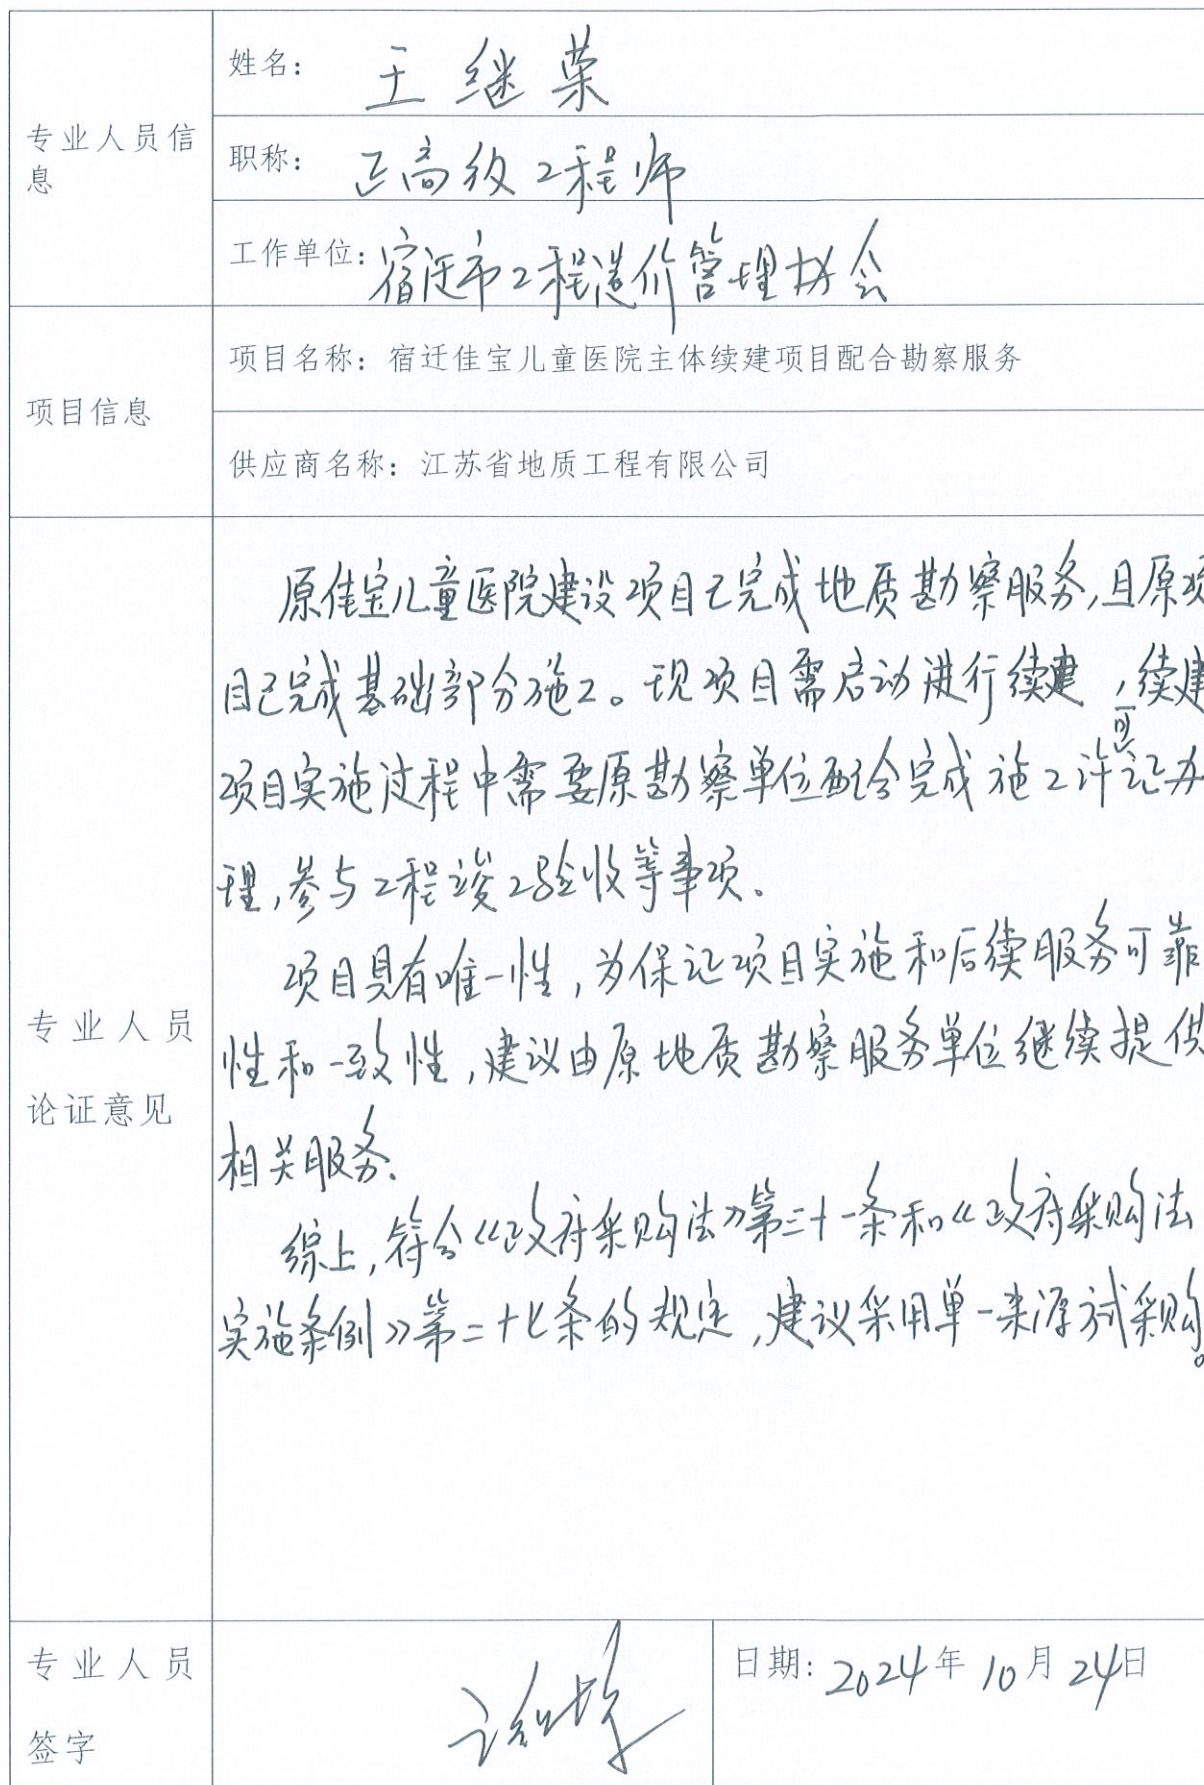 专业人员信
息
姓名: 王继荣
职称: 正高级工程师
工作单位: 宿迁市工程造价管理协会
项目信息
项目名称: 宿迁佳宝儿童医院主体续建项目配合勘察服务
供应商名称: 江苏省地质工程有限公司
专业人员
论证意见
原佳宝儿童医院建设项目已完成地质勘察服务,且原项
目已完成基础部分施工。现项目需启动进行续建,续建
项目实施过程中需要原勘察单位配合完成施工许可证办
理,参与工程竣工验收等事项。
项目具有唯一性,为保证项目实施和后续服务可靠
性和一致性,建议由原地质勘察服务单位继续提供
相关服务.
综上,符合《政府采购法》第三十一条和《政府采购法
实施条例》第二十七条的规定,建议采用单一来源方式采购。
专业人员
签字
日期: 2024年10月24日